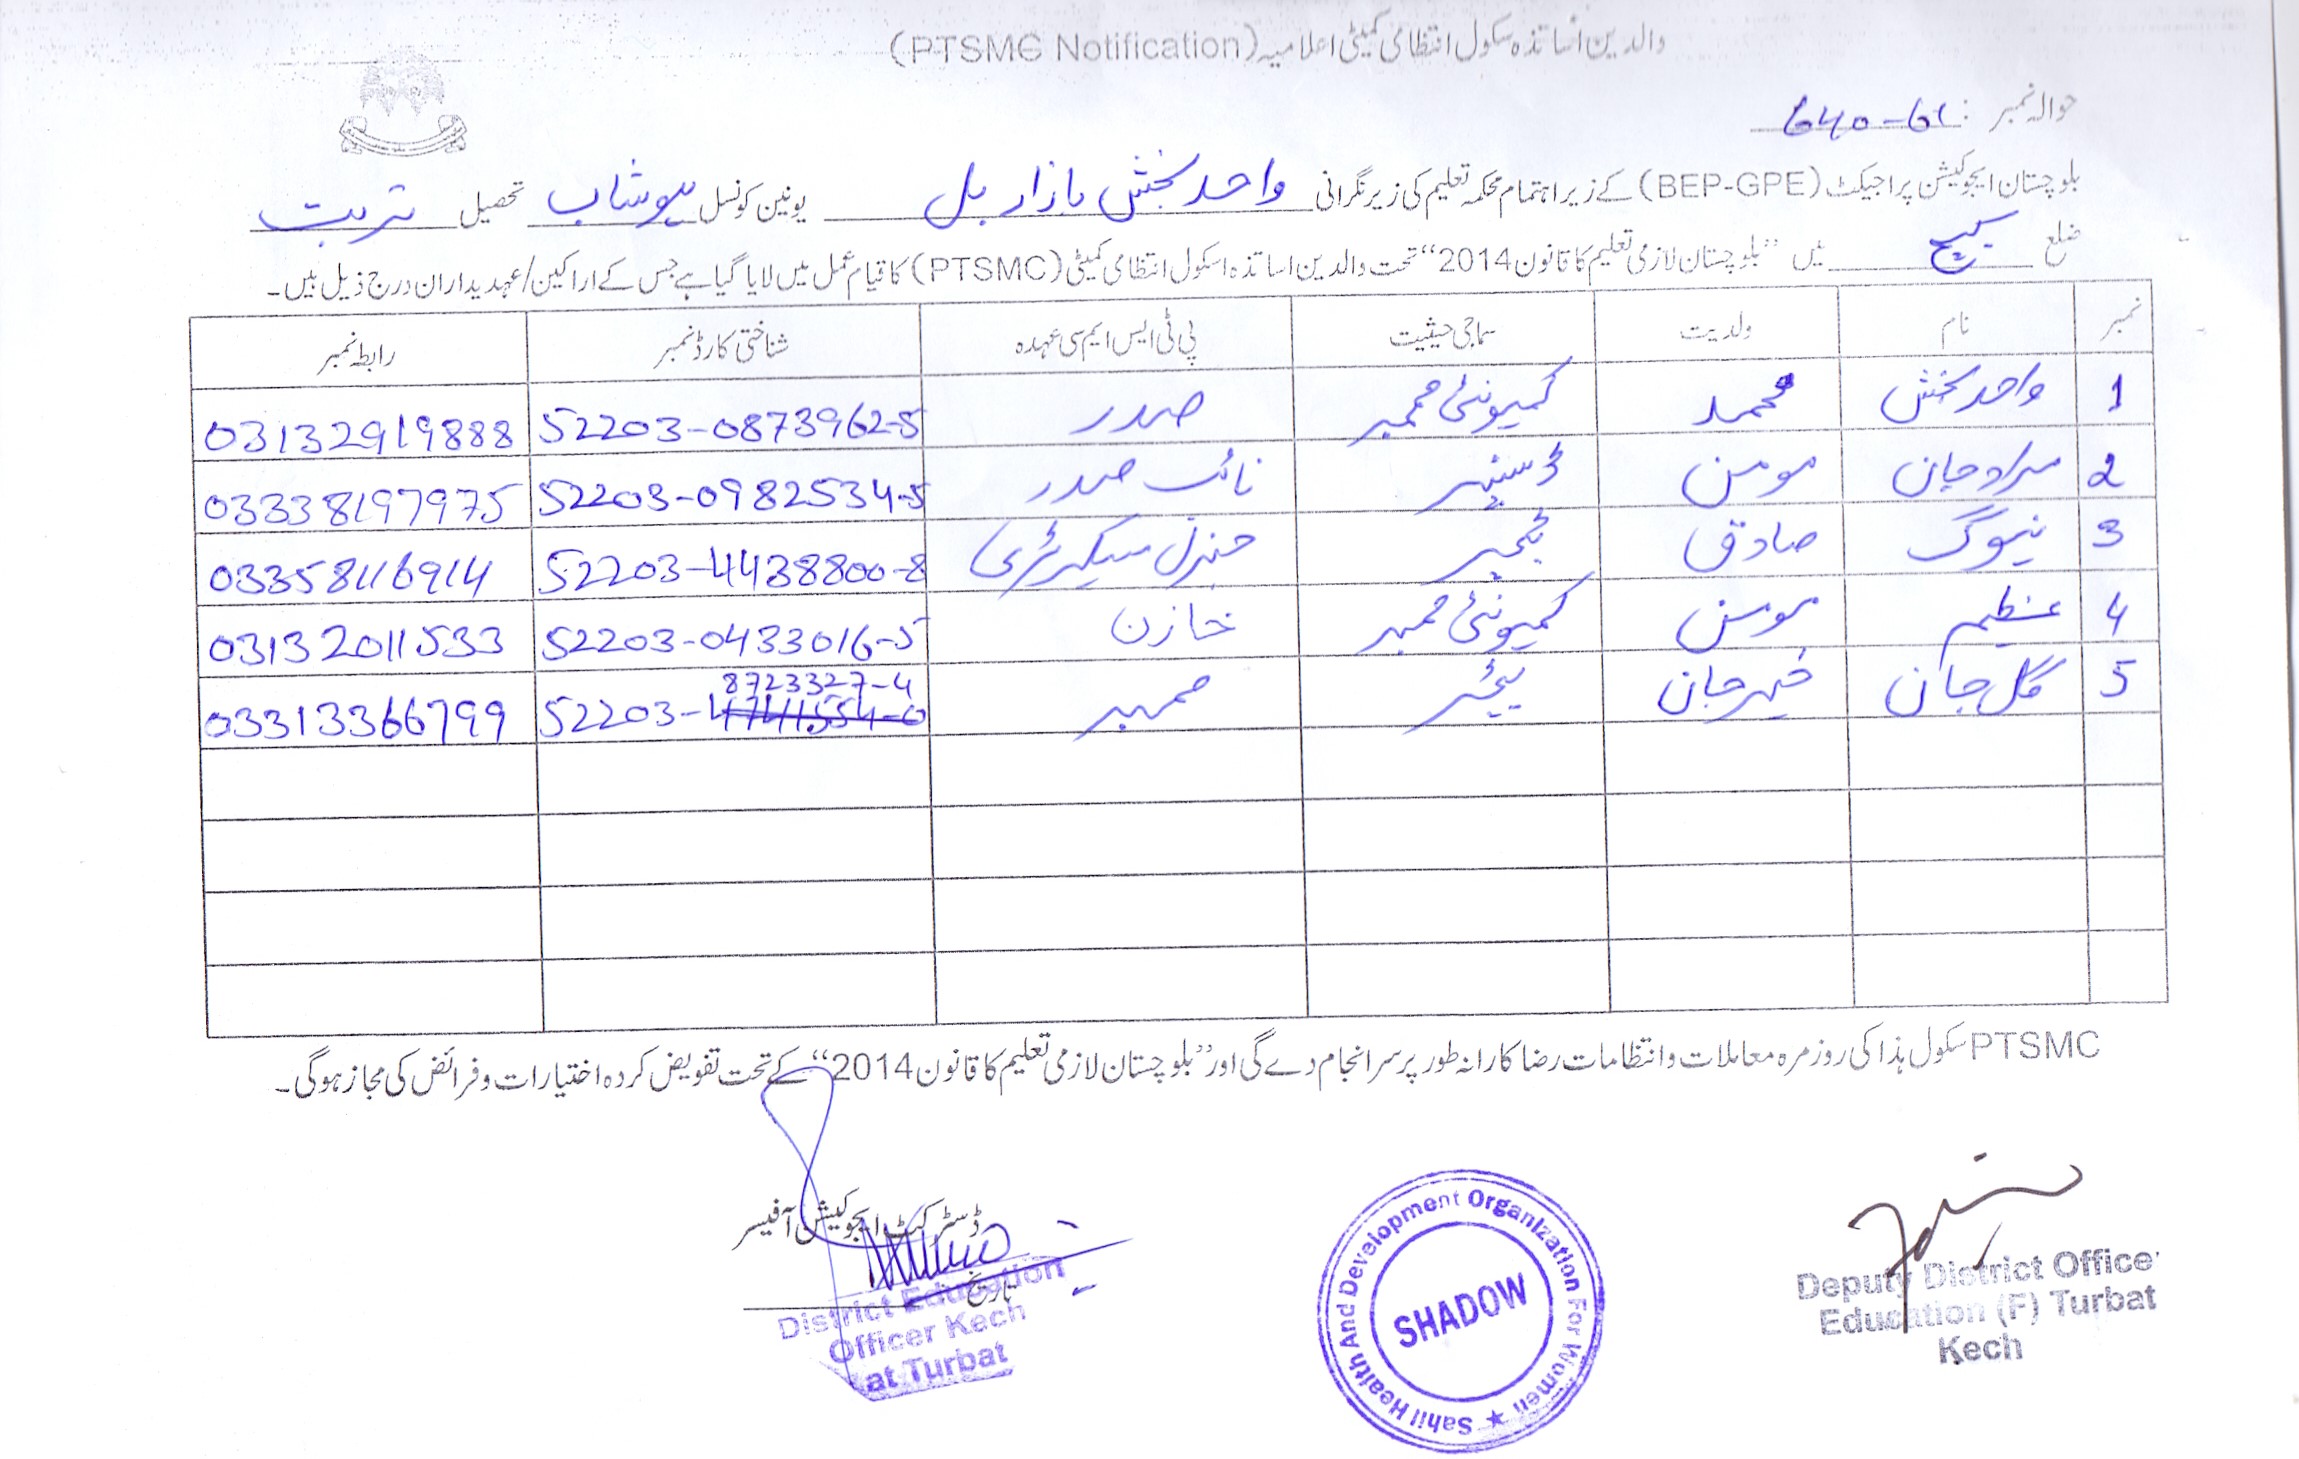 والدین اساتذہ سکول انتظامی کمیٹی اعلامیہ (PTSMC Notification)
حوالہ نمبر: 640-61
بلوچستان ایجوکیشن پراجیکٹ (BEP-GPE) کے زیر اہتمام محکمہ تعلیم کی زیر نگرانی واحد بخش بازار بل یونین کونسل ہوشاب تحصیل تربت
ضلع کیچ میں "بلوچستان لازمی تعلیم کا قانون 2014" تحت والدین اساتذہ اسکول انتظامی کمیٹی (PTSMC) کا قیام عمل میں لایا گیا ہے جس کے اراکین/عہدیداران درج ذیل ہیں۔
نمبر نام ولدیت سماجی حیثیت پی ٹی ایس ایم سی عہدہ شناختی کارڈ نمبر رابطہ نمبر
1 واحد بخش محمد کمیونٹی ممبر صدر 52203-0873962-5 03132919888
2 مراد جان مومن نائب صدر 52203-0982534-5 03338197975
3 نیوگ صادق ٹیچر جنرل سیکرٹری 52203-4438800-8 03358116914
4 عظیم مومن کمیونٹی ممبر خازن 52203-0433016-5 03132011533
8723327-4
5 گل جان خیر جان ٹیچر ممبر 52203- 03313366799
PTSMC سکول ہذا کی روزمرہ معاملات و انتظامات رضاکارانہ طور پر سر انجام دے گی اور "بلوچستان لازمی تعلیم کا قانون 2014" کے تحت تفویض کردہ اختیارات و فرائض کی مجاز ہوگی۔
ڈسٹرکٹ ایجوکیشن آفیسر
تاریخ
District Education
Officer Kech
at Turbat
Sahil Health And Development Organization For Women
SHADOW
Deputy District Officer
Education (F) Turbat
Kech